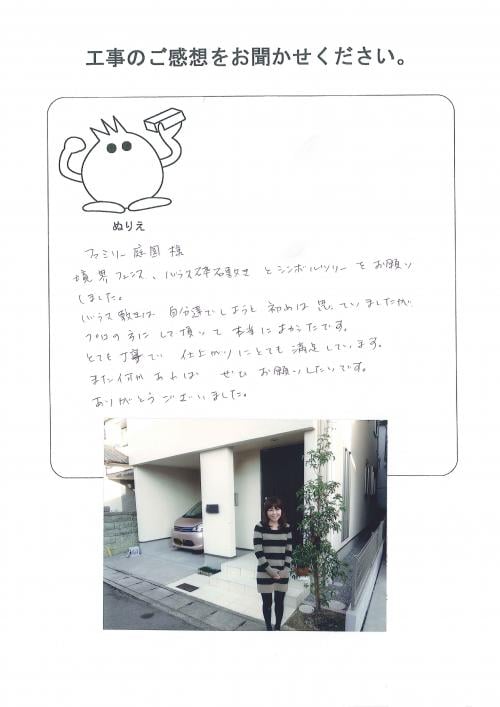 工事のご感想をお聞かせください。
ぬりえ
ファミリー庭園 様
境界フェンス、バラス砕石敷きとシンボルツリーをお願い
しました。
バラス敷きは 自分達でしようと初めは思っていましたが、
プロの方にして頂いて本当によかったです。
とても丁寧で 仕上がりにとても満足しています。
また何か あれば ぜひ お願いしたいです。
ありがとうございました。